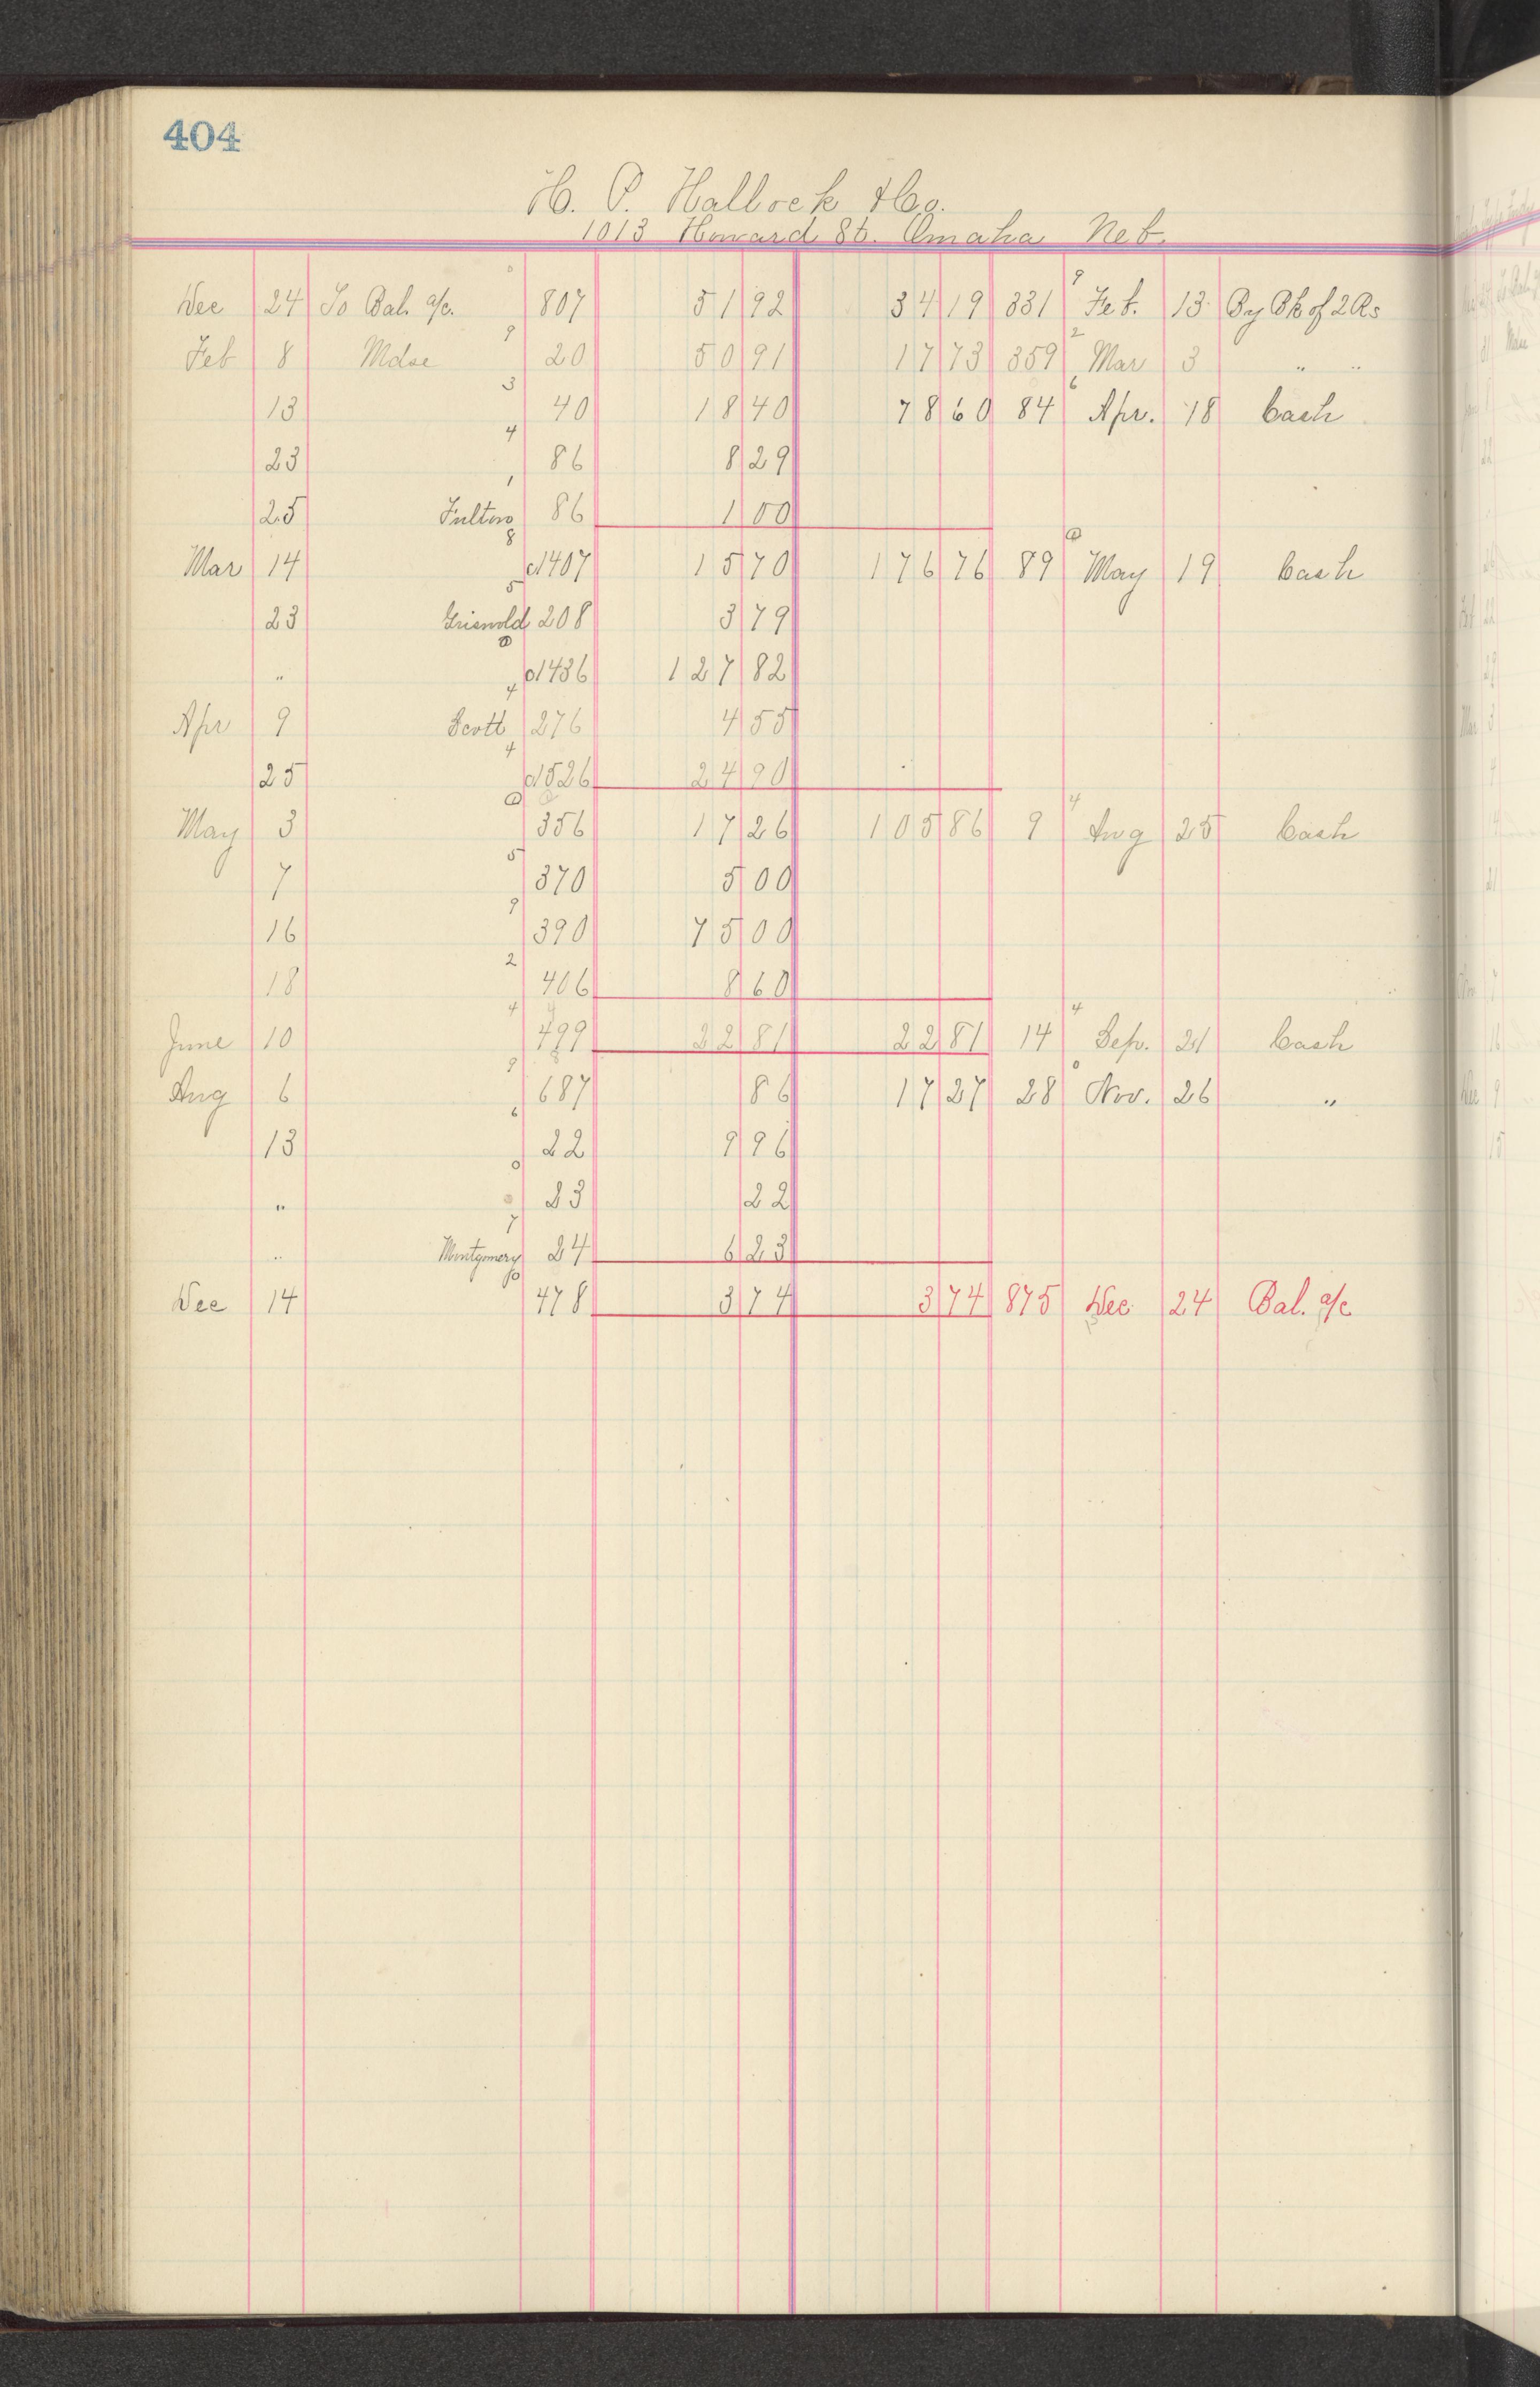 404
H. P. Hallock & Co.
1013 Howard St. Omaha Neb.
Dec 24 To Bal. a/c. 0 807 51 92 34 19 331 9 Feb. 13 By Bk of 2 Rs
Feb 8 Mdse 9 20 50 91 17 73 359 2 Mar 3 " "
13 3 40 18 40 78 60 84 6 Apr. 18 Cash
23 4 86 8 29
25 Fulton 1 86 1 00
Mar 14 8 d1407 15 70 176 76 89 @ May 19 Cash
23 Griswold 5 208 3 79
" @ d1436 127 82
Apr 9 Scott 4 276 4 55
25 4 d1526 24 90
May 3 @ 356 17 26 105 86 9 4 Aug 25 Cash
7 5 370 5 00
16 9 390 75 00
18 2 406 8 60
June 10 4 499 22 81 22 81 14 4 Sep. 21 Cash
Aug 6 9 687 86 17 27 28 0 Nov. 26 "
13 6 22 9 96
" 0 23 22
" Montgomery 7 24 6 23
Dec 14 478 3 74 3 74 875 Dec 24 Bal. a/c